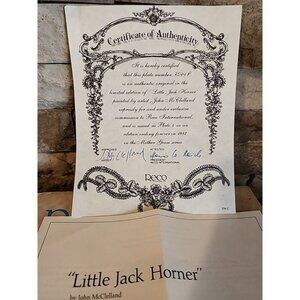 Certificate of Authenticity
It is hereby certified
that this plate number
is an authentic original in the
limited edition of "Little Jack Horner"
painted by artist, John McClelland
expressly for and under exclusive
commission to Reco International,
and is issued as Plate 4 in an
edition ending forever in 1982
in the Mother Goose series
RECO
"Little Jack Horner"
by John McClelland